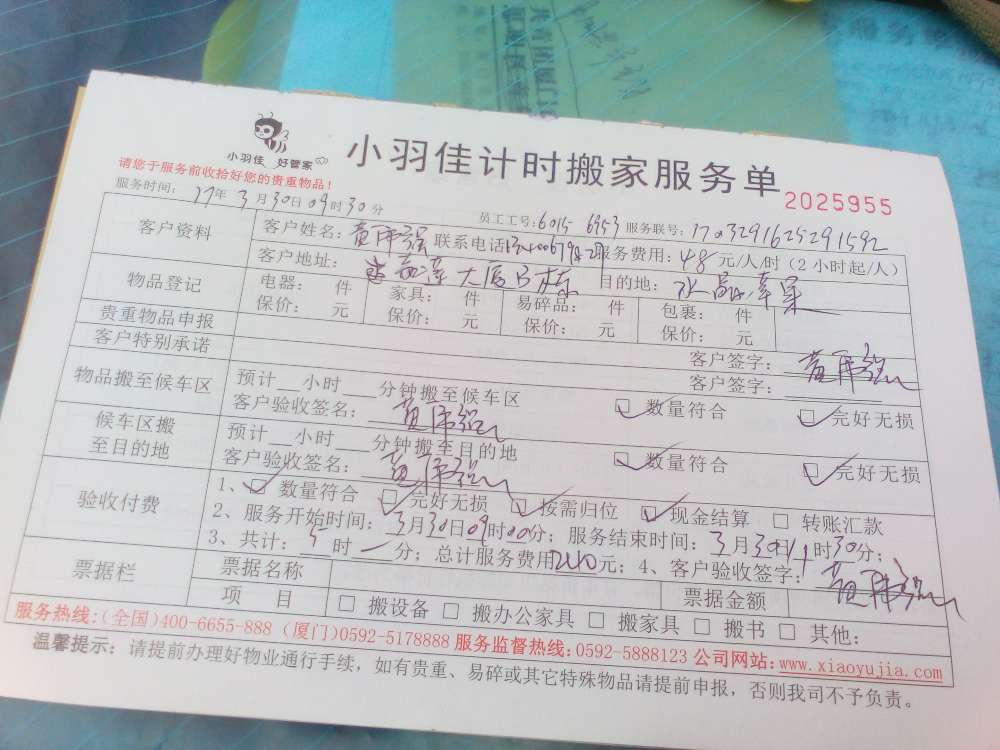 小羽佳 好管家
小羽佳计时搬家服务单
2025955
请您于服务前收拾好您的贵重物品！
服务时间： 17年3月30日09时30分 员工工号：6015 6953 服务联号：1703291625291592
客户资料 客户姓名： 联系电话 服务费用：48元/人/时（2小时起/人）
客户地址： 大厦B栋 目的地：水晶苹果
物品登记 电器： 件 家具： 件 易碎品： 件 包裹： 件
保价： 元 保价： 元 保价： 元 保价： 元
贵重物品申报 客户签字：
客户特别承诺 客户签字：
物品搬至候车区 预计__小时___分钟搬至候车区
客户验收签名： 数量符合 完好无损
候车区搬至目的地 预计__小时___分钟搬至目的地
客户验收签名： 数量符合 完好无损
验收付费 1、数量符合 完好无损 按需归位 现金结算 转账汇款
2、服务开始时间：3月30日09时00分；服务结束时间：3月30日11时30分；
3、共计：5时一分；总计服务费用240元；4、客户验收签字：
票据栏 票据名称 票据金额
项 目 搬设备 搬办公家具 搬家具 搬书 其他：
服务热线：(全国)400-6655-888 (厦门)0592-5178888 服务监督热线：0592-5888123 公司网站：www.xiaoyujia.com
温馨提示：请提前办理好物业通行手续，如有贵重、易碎或其它特殊物品请提前申报，否则我司不予负责。